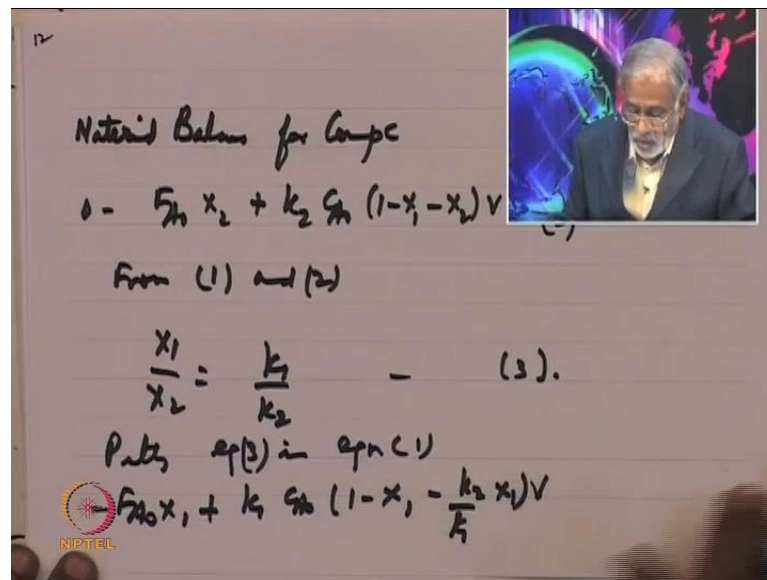 12
Material Balance for Comp C
0 - F_A0 x_2 + k_2 C_A0 (1-x_1-x_2) V
From (1) and (2)
x_1/x_2 = k_1/k_2 - (3).
Putting eq(3) in eqn (1)
-F_A0 x_1 + k_1 C_A0 (1-x_1 - k_2/k_1 x_1) V
NPTEL